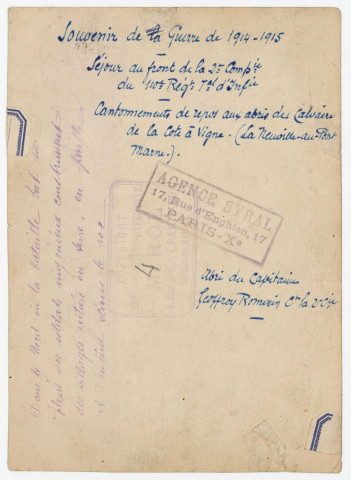 Souvenir de la Guerre de 1914-1915
Séjour au front de la 2e Compie
du 110e Régt Tal d'Infie
Cantonnements de repos aux abris du Calvaire
de la Cote à Vigne. (La Neuville-au-Pont
Marne.).
AGENCE SYRAL
17, Rue d'Enghien, 17
PARIS-Xe
4
Abri du Capitaine
Geoffroy Romain Ct la 2e Cie
dans le Nord où la bataille fait
plein nos soldats ingénieux construisent
des villages entiers en terre, en paille
et même dans le roc